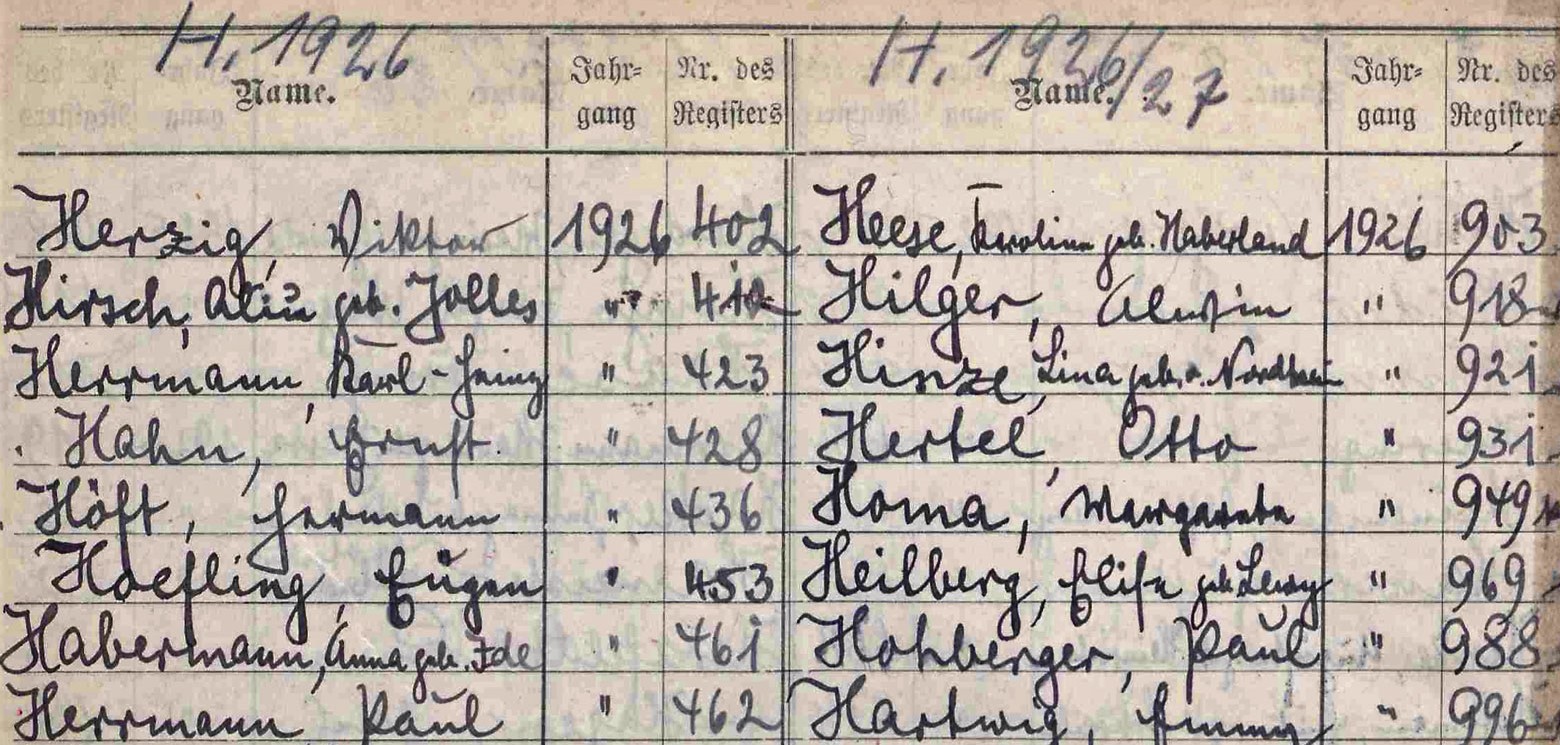 H. 1926
Name.
Jahr-
gang
Nr. des
Registers
Herzig, Viktor 1926 402
Hirsch, geb. Jolles "
Herrmann, Karl-Heinz " 423
Hahn, Ernst " 428
Höft, Hermann " 436
Hoefling, Eugen " 453
Habermann, Anna geb. Ide " 461
Herrmann Paul " 462
H. 1926/27
Name.
Jahr-
gang
Nr. des
Registers
Heese, Karoline geb. Haberland 1926 903
Hilger, Alwin " 918
Hinze, Lina geb. " 921
Hertel, Otto " 931
Homa, Margarete " 949
Heilberg, Elise geb. Lewy " 969
Hohberger, Paul " 988
Hartwig, Emmy " 996